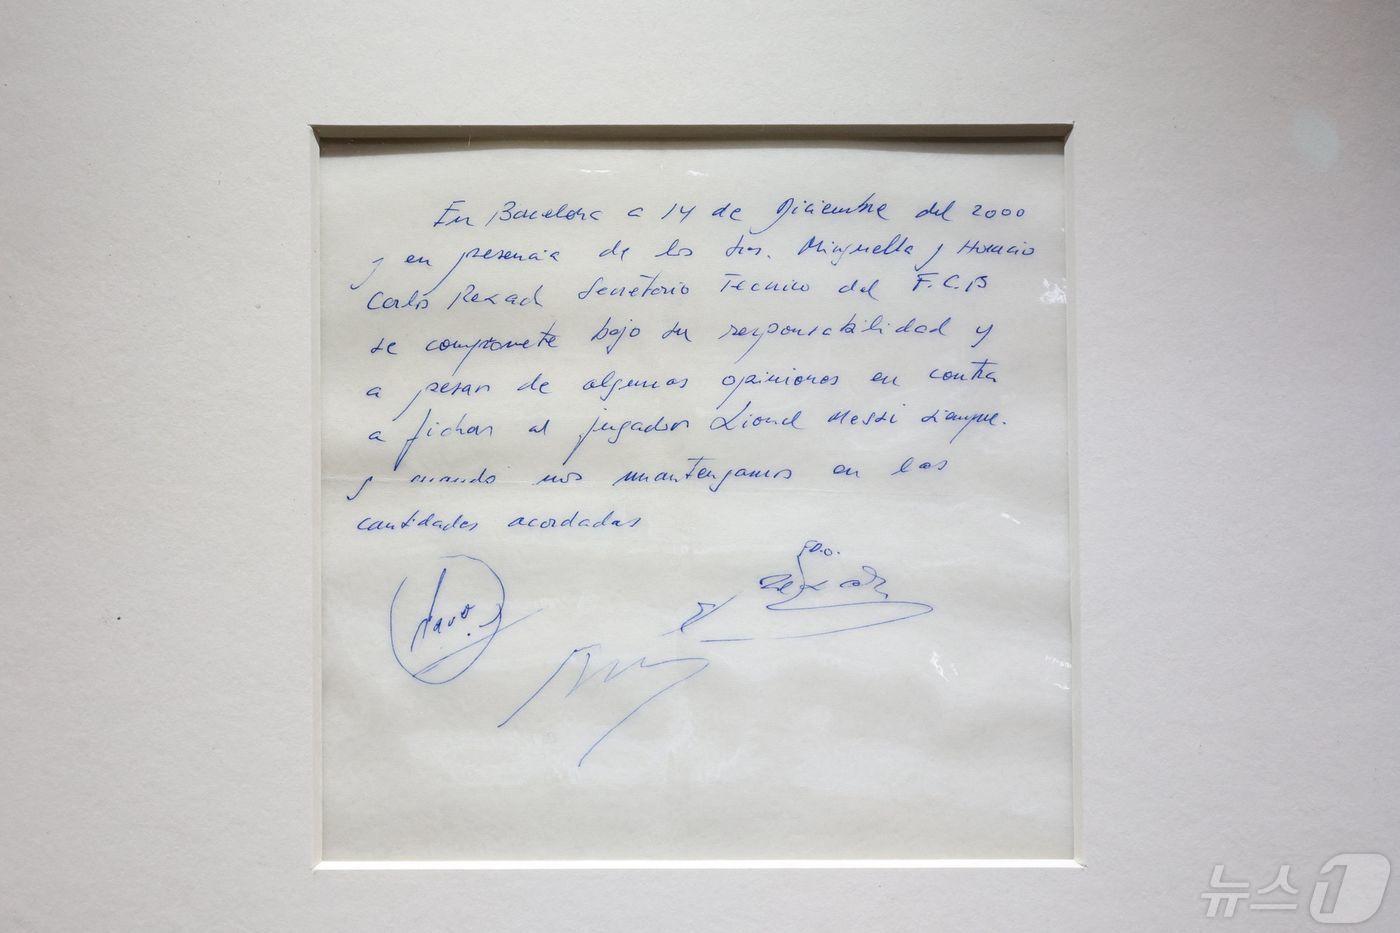 En Barcelona a 14 de Diciembre del 2000
y en presencia de los Srs. Minguella y Horacio
Carlos Rexach Secretario Tecnico del F.C.B
se compromete bajo su responsabilidad y
a pesar de algunas opiniones en contra
a fichar al jugador Lionel Messi siempre.
y cuando nos mantengamos en las
cantidades acordadas
Fdo.
Rexach
뉴스1